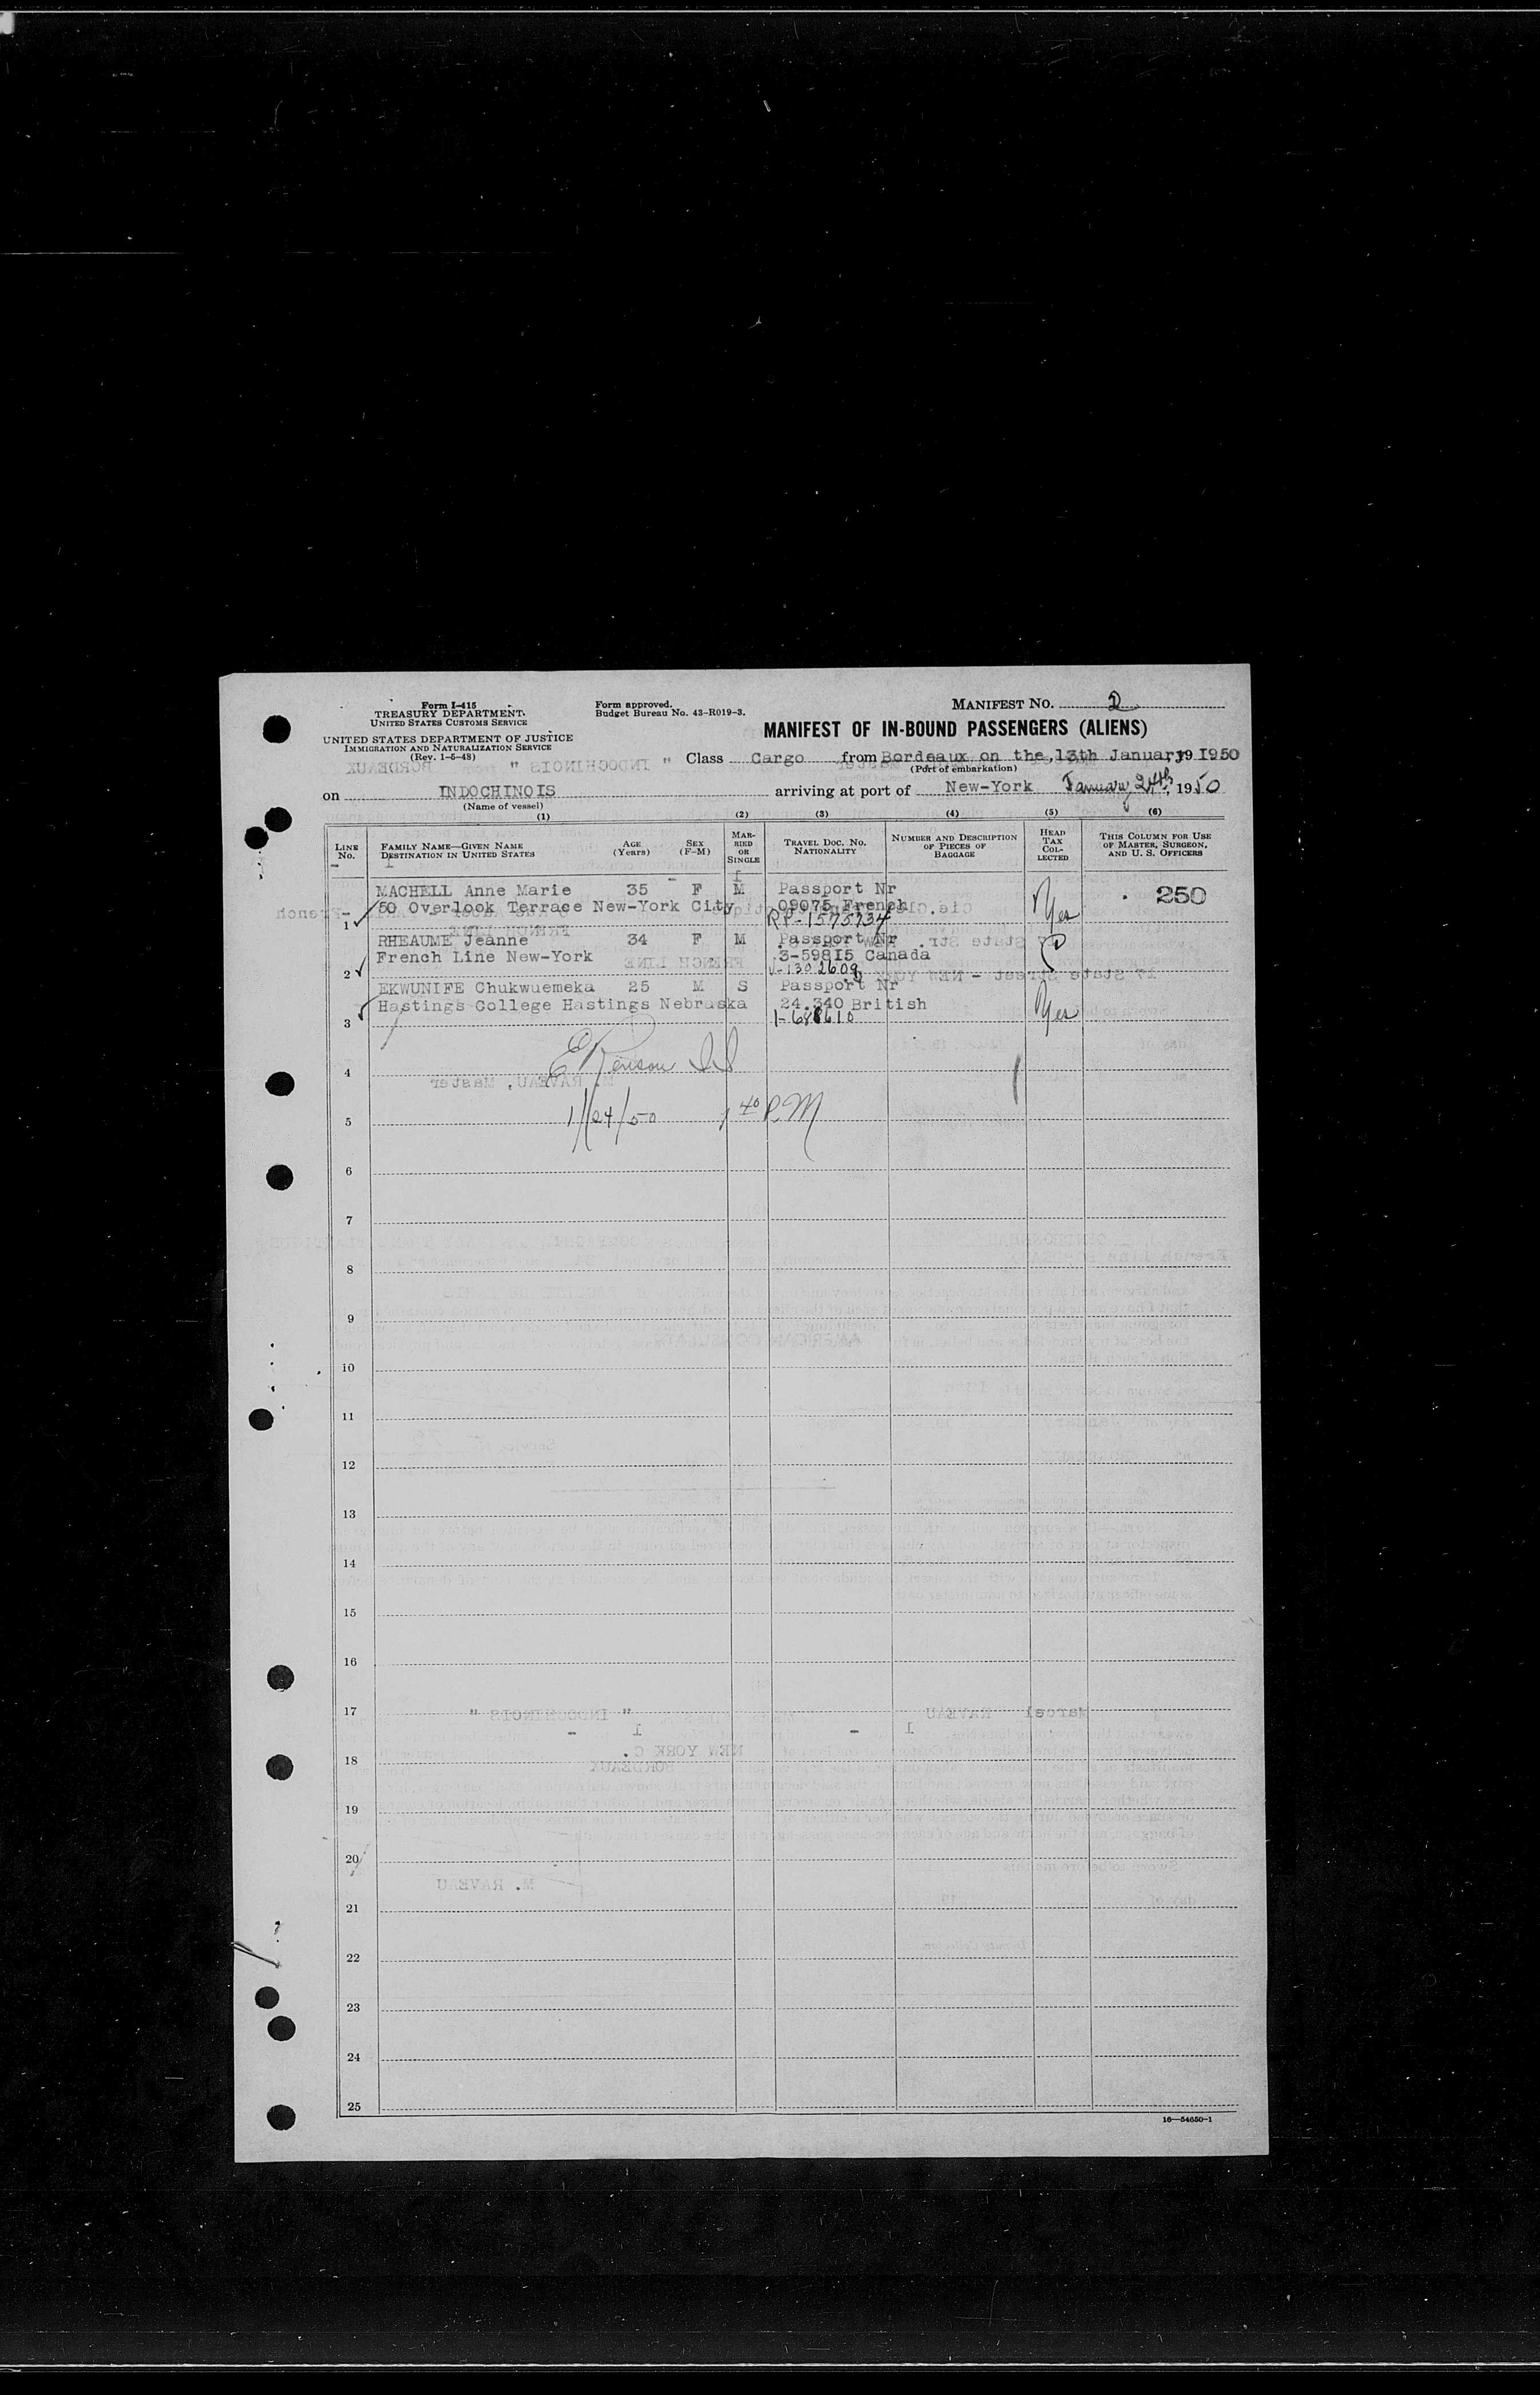 Form I-415
TREASURY DEPARTMENT
UNITED STATES CUSTOMS SERVICE
UNITED STATES DEPARTMENT OF JUSTICE
IMMIGRATION AND NATURALIZATION SERVICE
(Rev. 1-5-48)
Form approved.
Budget Bureau No. 43-R019-3.
MANIFEST NO. 2
MANIFEST OF IN-BOUND PASSENGERS (ALIENS)
Class Cargo from Bordeaux on the, 13th January, 19 1950
(Port of embarkation)
on INDOCHINOIS arriving at port of New-York January 24th, 1950
(Name of vessel)
(1) (2) (3) (4) (5) (6)
LINE NO.
FAMILY NAME—GIVEN NAME
DESTINATION IN UNITED STATES
AGE (Years)
SEX (F-M)
MARRIED OR SINGLE
TRAVEL DOC. NO. NATIONALITY
NUMBER AND DESCRIPTION OF PIECES OF BAGGAGE
HEAD TAX COLLECTED
THIS COLUMN FOR USE OF MASTER, SURGEON, AND U. S. OFFICERS
MACHELL Anne Marie 35 F M Passport Nr 250
50 Overlook Terrace New-York City 09075 French Yes
1 RP-1575734
RHEAUME Jeanne 34 F M Passport Nr
French Line New-York 3-59815 Canada
2 V-1302609
EKWUNIFE Chukwuemeka 25 M S Passport Nr
Hastings College Hastings Nebraska 24.340 British Yes
3
4
1/24/50 1 40 PM
5
6
7
8
9
10
11
12
13
14
15
16
17
18
19
20
21
22
23
24
25
16—54650-1